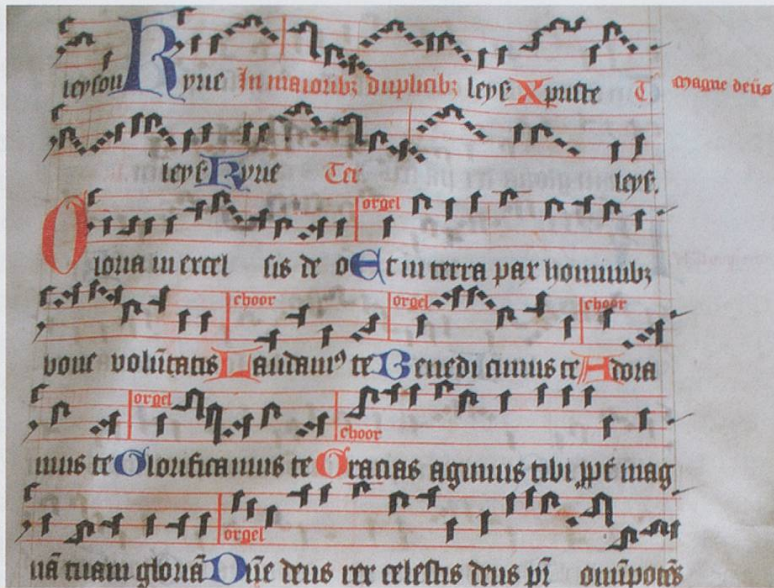 leyson Kyrie In maioribꝫ duplicibꝫ leyſ Xpriste T Magne deūs
leyſ Kyrie Ter leyſ.
orgel
Gloria in excel sis de o Et in terra pax hominibꝫ
choor orgel choor
bone volūtatis Laudamꝰ te Benedi cimus te Adora
orgel choor
mus te Glorifica mus te Gracias agimus tibi ꝓpt mag
orgel
nā tuam gloriā Dn̄e deus rex celestis deus pr̄ omīpotēs